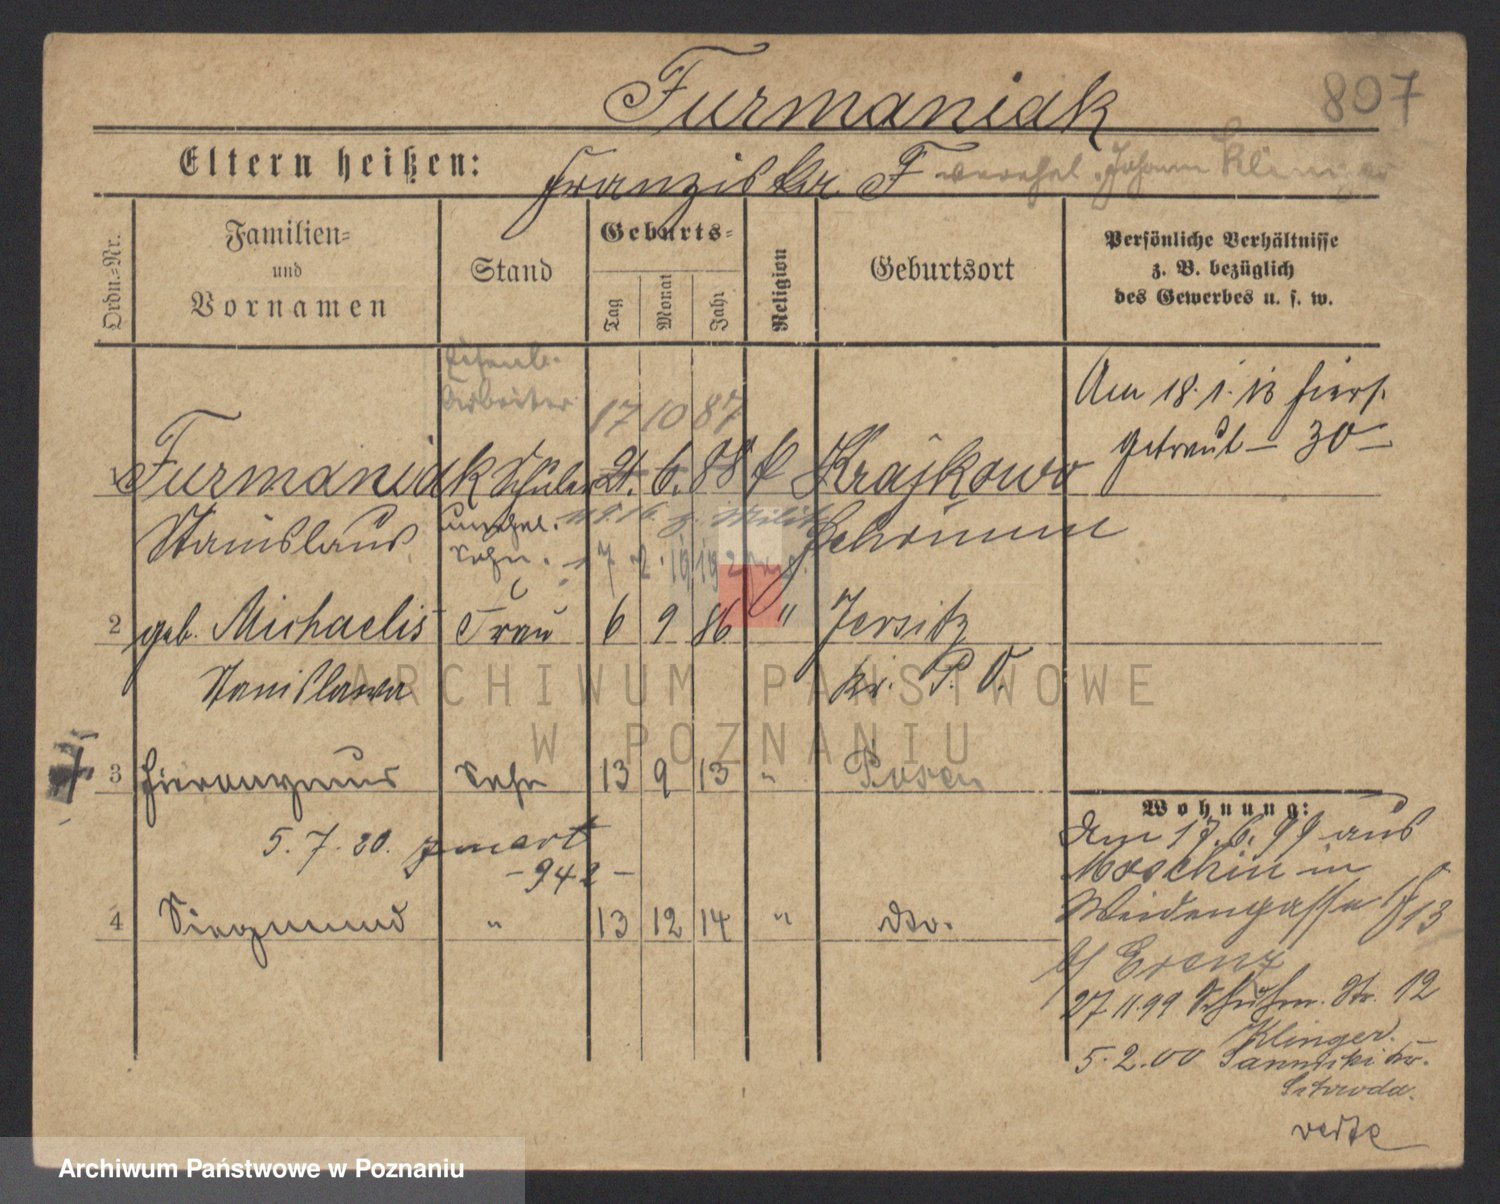 807
Furmaniak
Eltern heißen: Franziska F verehel. Johann Klinger
Ordn.-Nr.
Familien- und Vornamen
Stand
Geburts-
Tag
Monat
Jahr
Religion
Geburtsort
Persönliche Verhältnisse
z. B. bezüglich
des Gewerbes u. s. w.
Arbeiter
17 10 87
Am 18. 1. 13 hiers.
getraut – 30 –
1 Furmaniak Schüler 21. 6. 88 k Krajkowo
Stanislaus unehel. Schrimm
Sohn.
2 geb. Michaelis Frau 6 9 86 " Jersitz
Stanislawa Kr. P. O.
3 Hieronymus Sohn 13 9 13 " Posen
5. 7. 30.
– 942 –
4 Siegmund " 13 12 14 " dto.
Wohnung:
Am 17. 6. 99 aus
Moschin in
Weidengasse 13
27. 11. 99 Str. 12
Klinger.
5. 2. 00
Schroda.
verte
ARCHIWUM PAŃSTWOWE
W POZNANIU
Archiwum Państwowe w Poznaniu